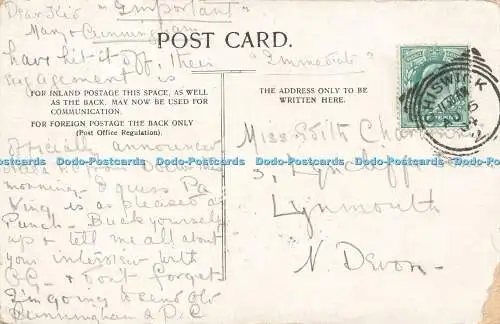 Dear Kid "Important"
Mary & Cunningham
have hit it off, their
engagement is
POST CARD.
"Immediate"
FOR INLAND POSTAGE THIS SPACE, AS WELL
AS THE BACK. MAY NOW BE USED FOR
COMMUNICATION.
FOR FOREIGN POSTAGE THE BACK ONLY
(Post Office Regulation).
THE ADDRESS ONLY TO BE
WRITTEN HERE.
officially announced
this
morning. I guess Pa
King is as pleased as
Punch. Buck yourself
up & tell me all about
your interview with
C.G. & don't forget
I'm going to send old
Cunningham a P.C
Miss Edith
3,
Lynmouth
N. Devon.
CHISWICK
Dodo-Postcards Dodo-Postcards Dodo-Postcards Dodo-Postcards Dodo-Postcards